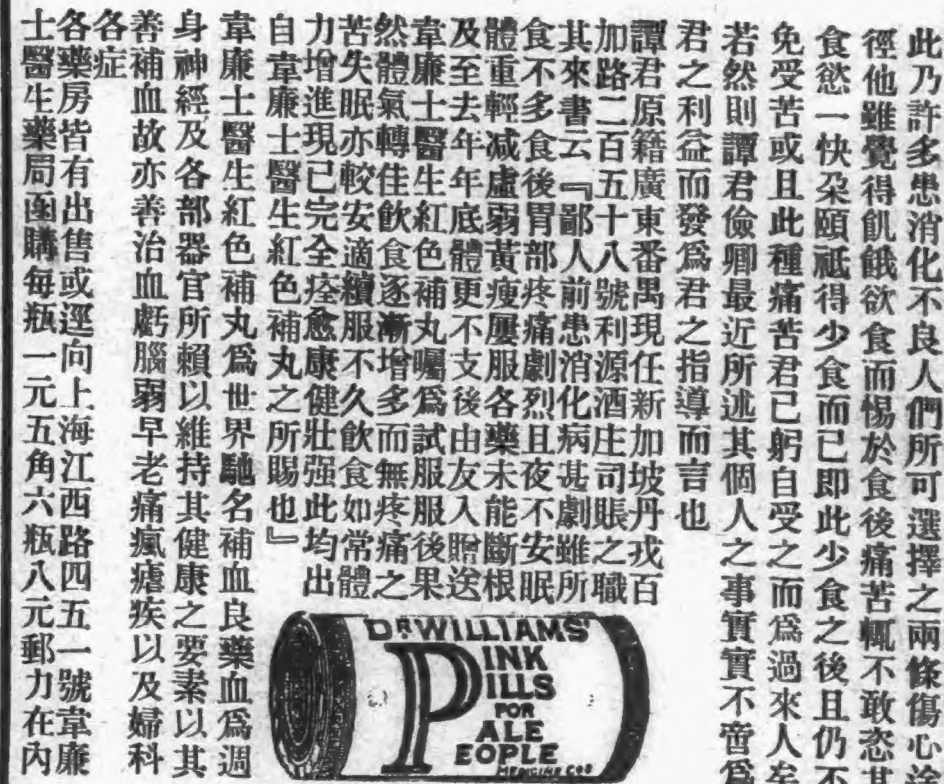 此乃許多患消化不良人們所可選擇之兩條傷心
徑他雖覺得飢餓欲食而惕於食後痛苦輒不敢恣其
食慾一快朶頤祇得少食而已即此少食之後且仍不
免受苦或且此種痛苦君已躬自受之而爲過來人矣
若然則譚君儉卿最近所述其個人之事實實不啻爲
君之利益而發爲君之指導而言也
譚君原籍廣東番禺現任新加坡丹戎百
加路二百五十八號利源酒庄司賬之職
其來書云『鄙人前患消化病甚劇雖所
食不多食後胃部疼痛劇烈且夜不安眠
體重輕减虛弱黃瘦屢服各藥未能斷根
及至去年年底體更不支後由友入贈送
韋廉士醫生紅色補丸囑爲試服服後果
然體氣轉佳飲食逐漸增多而無疼痛之
苦失眠亦較安適續服不久飲食如常體
力增進現已完全痊愈康健壯强此均出
自韋廉士醫生紅色補丸之所賜也』
韋廉士醫生紅色補丸爲世界馳名補血良藥血爲週
身神經及各部器官所賴以維持其健康之要素以其
善補血故亦善治血虧腦弱早老痛瘋瘧疾以及婦科
各症
各藥房皆有出售或逕向上海江西路四五一號韋廉
士醫生藥局函購每瓶一元五角六瓶八元郵力在內
DR WILLIAMS'
PINK
PILLS
FOR
PALE
PEOPLE
MEDICINE CO